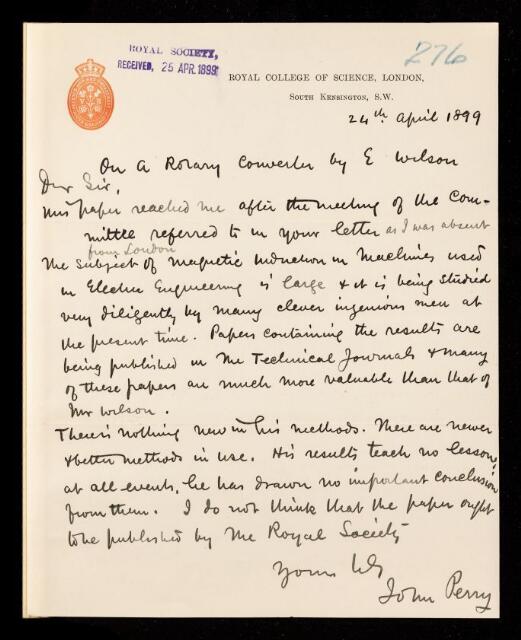 ROYAL SOCIETY,
RECEIVED, 25 APR. 1899
276
ROYAL COLLEGE OF SCIENCE, LONDON,
SOUTH KENSINGTON, S.W.
24th April 1899
On a Rotary Converter by E Wilson
Dear Sir,
This paper reached me after the meeting of the Com-
mittee referred to in your letter as I was absent
from London
The subject of magnetic induction in Machines used
in Electric Engineering is large & it is being studied
very diligently by many clever ingenious men at
the present time. Papers containing the results are
being published in the Technical Journals & many
of these papers are much more valuable than that of
Mr Wilson.
There is nothing new in his methods. There are newer
& better methods in use. His results teach no lesson,
at all events, he has drawn no important conclusion
from them. I do not think that the paper ought
to be published by the Royal Society
Yours
John Perry